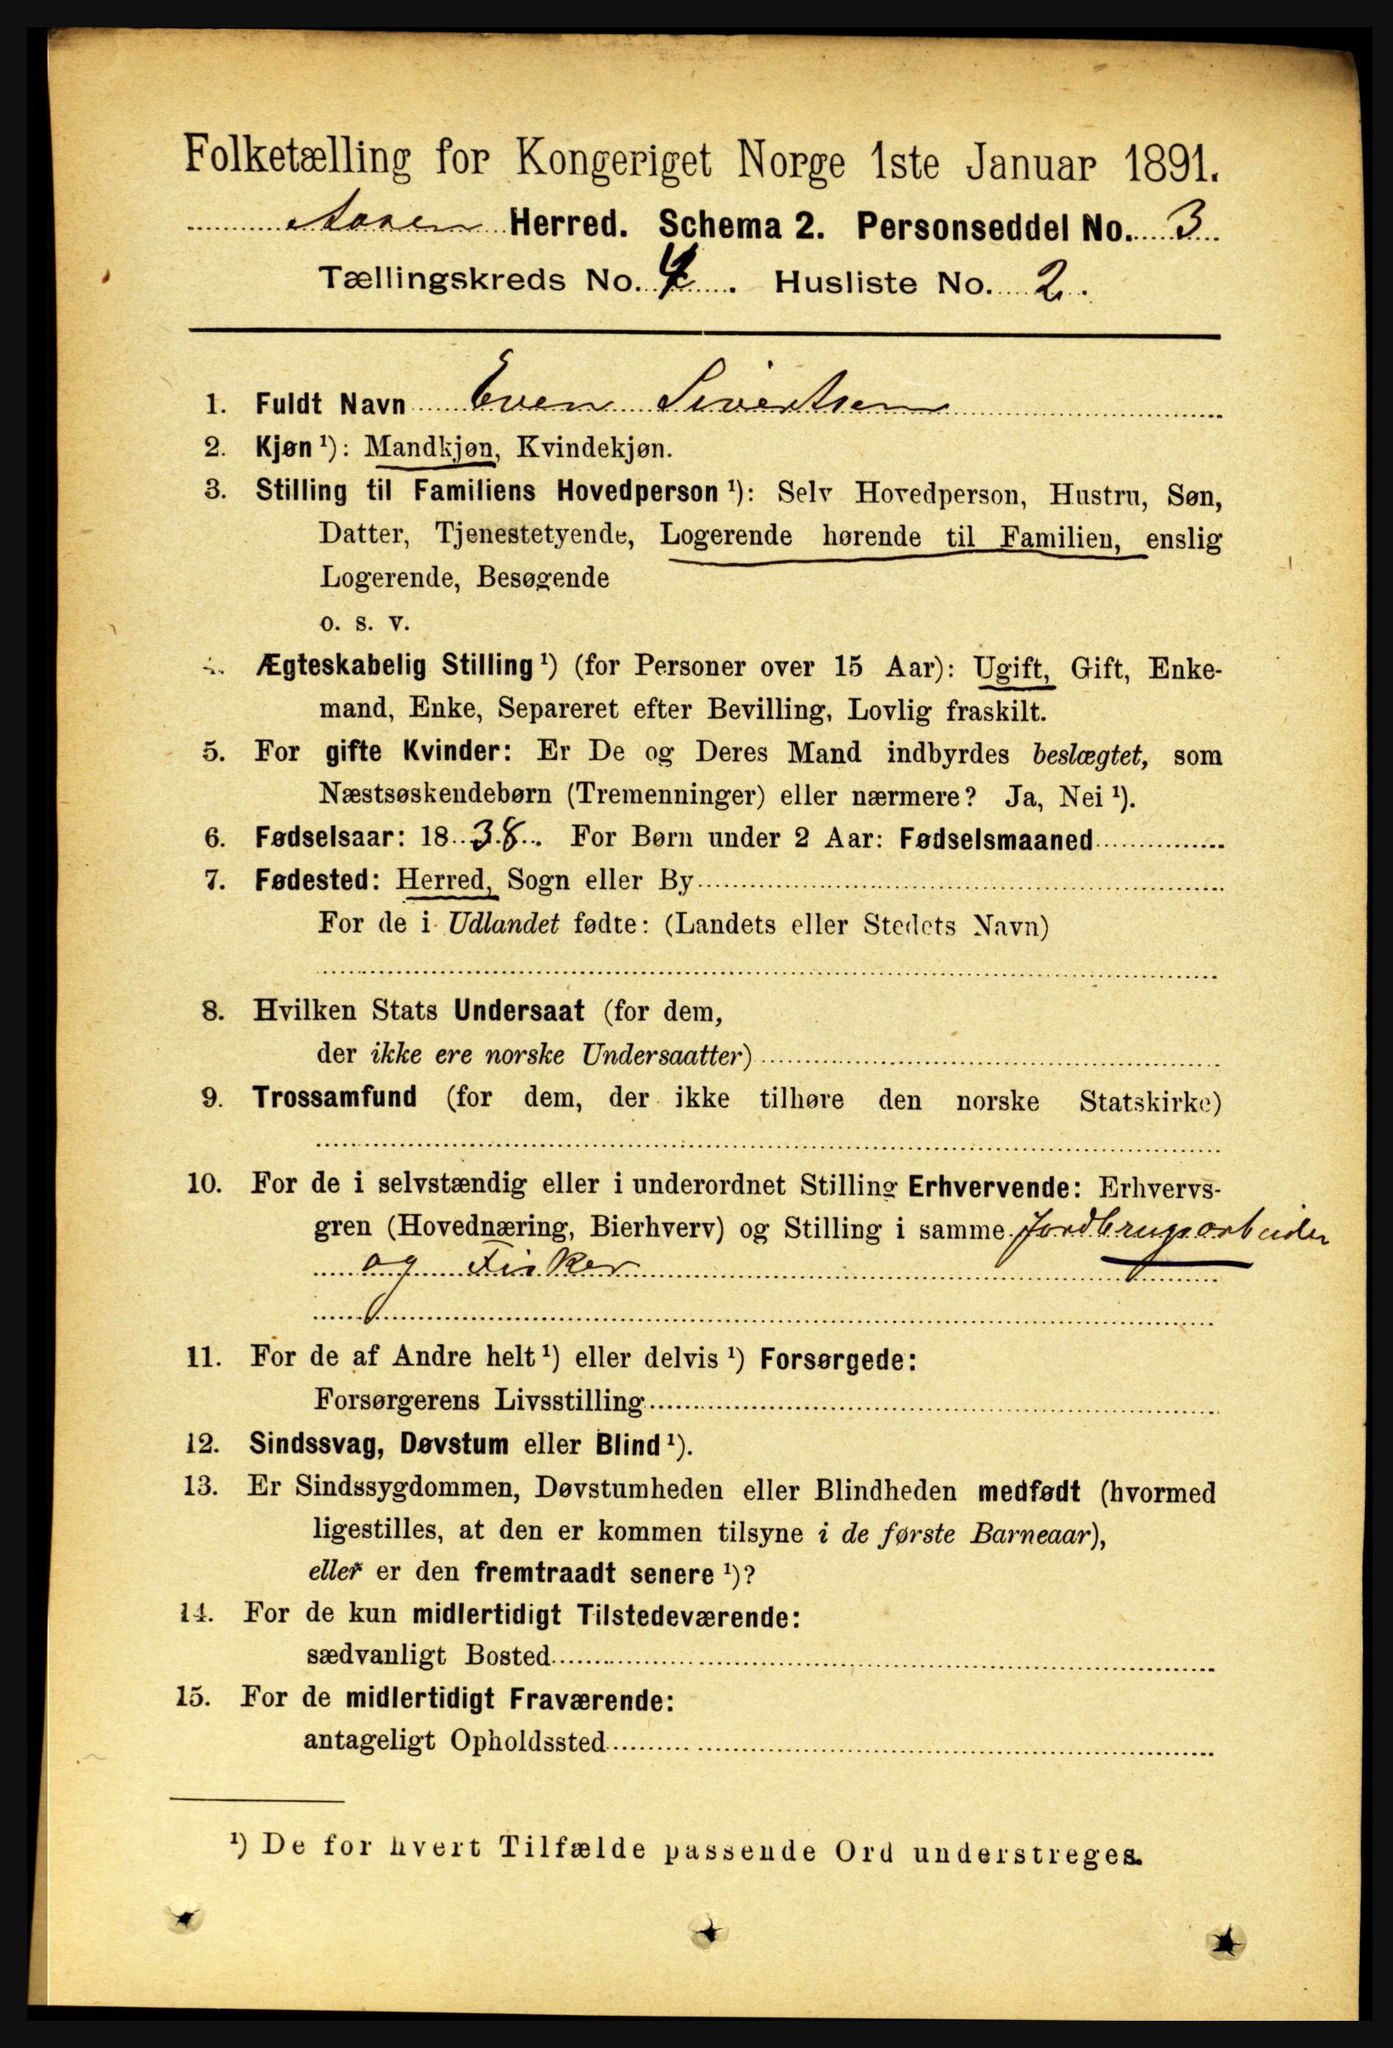 Folketælling for Kongeriget Norge 1ste Januar 1891.
Herred. Schema 2. Personseddel No. 3
Tællingskreds No. 4. Husliste No. 2.
1. Fuldt Navn Even Sivertsen
2. Kjøn ¹): Mandkjøn, Kvindekjøn.
3. Stilling til Familiens Hovedperson ¹): Selv Hovedperson, Hustru, Søn,
Datter, Tjenestetyende, Logerende hørende til Familien, enslig
Logerende, Besøgende
o. s. v.
4. Ægteskabelig Stilling ¹) (for Personer over 15 Aar): Ugift, Gift, Enke-
mand, Enke, Separeret efter Bevilling, Lovlig fraskilt.
5. For gifte Kvinder: Er De og Deres Mand indbyrdes beslægtet, som
Næstsøskendebørn (Tremenninger) eller nærmere? Ja, Nei ¹).
6. Fødselsaar: 1838. For Børn under 2 Aar: Fødselsmaaned
7. Fødested: Herred, Sogn eller By
For de i Udlandet fødte: (Landets eller Stedets Navn)
8. Hvilken Stats Undersaat (for dem,
der ikke ere norske Undersaatter)
9. Trossamfund (for dem, der ikke tilhøre den norske Statskirke)
10. For de i selvstændig eller i underordnet Stilling Erhvervende: Erhvervs-
gren (Hovednæring, Bierhverv) og Stilling i samme Jordbrugsarbeider
og Fisker
11. For de af Andre helt ¹) eller delvis ¹) Forsørgede:
Forsørgerens Livsstilling
12. Sindssvag, Døvstum eller Blind ¹).
13. Er Sindssygdommen, Døvstumheden eller Blindheden medfødt (hvormed
ligestilles, at den er kommen tilsyne i de første Barneaar),
eller er den fremtraadt senere ¹)?
14. For de kun midlertidigt Tilstedeværende:
sædvanligt Bosted
15. For de midlertidigt Fraværende:
antageligt Opholdssted
¹) De for hvert Tilfælde passende Ord understreges.